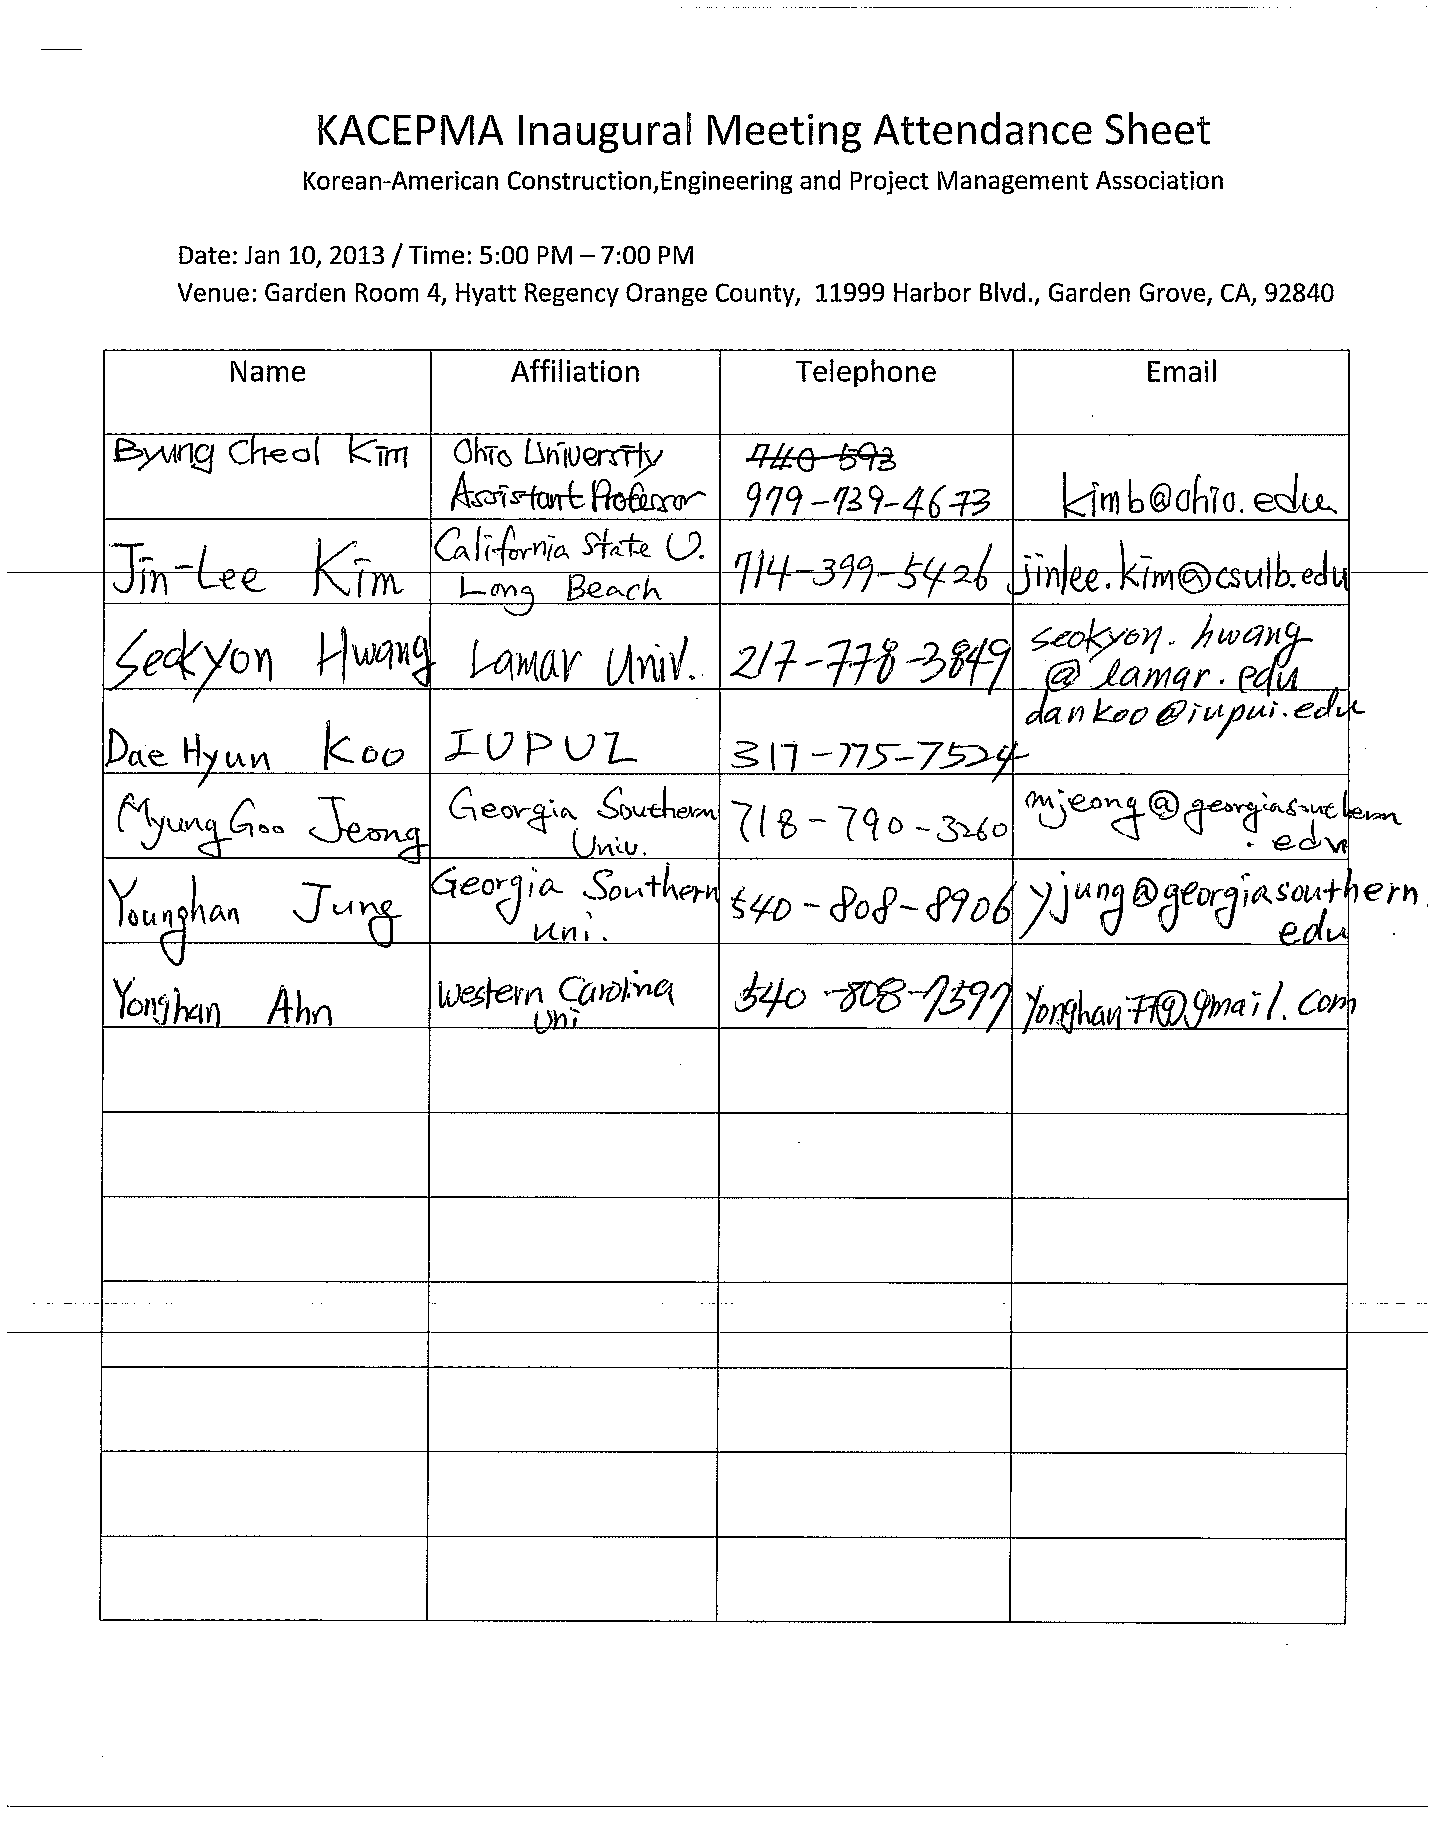 KACEPMA Inaugural Meeting Attendance Sheet
Korean-American Construction,Engineering and Project Management Association
Date: Jan 10, 2013 / Time: 5:00 PM – 7:00 PM
Venue: Garden Room 4, Hyatt Regency Orange County, 11999 Harbor Blvd., Garden Grove, CA, 92840
Name Affiliation Telephone Email
Byung Cheol Kim Ohio University 740-593
Assistant Professor 979-739-4673 kimb@ohio.edu
Jin-Lee Kim California State U. 714-399-5426 jinlee.kim@csulb.edu
Long Beach
Seokyon Hwang Lamar Univ. 217-778-3849 seokyon.hwang
@lamar.edu
Dae Hyun Koo IUPUI 317-775-7524 dankoo@iupui.edu
Myung Goo Jeong Georgia Southern 718-790-3260 mjeong@georgiasouthern
Univ. .edu
Younghan Jung Georgia Southern 540-808-8906 yjung@georgiasouthern.
Uni. edu
Yonghan Ahn Western Carolina 540-808-7397 Yonghan77@gmail.com
Uni